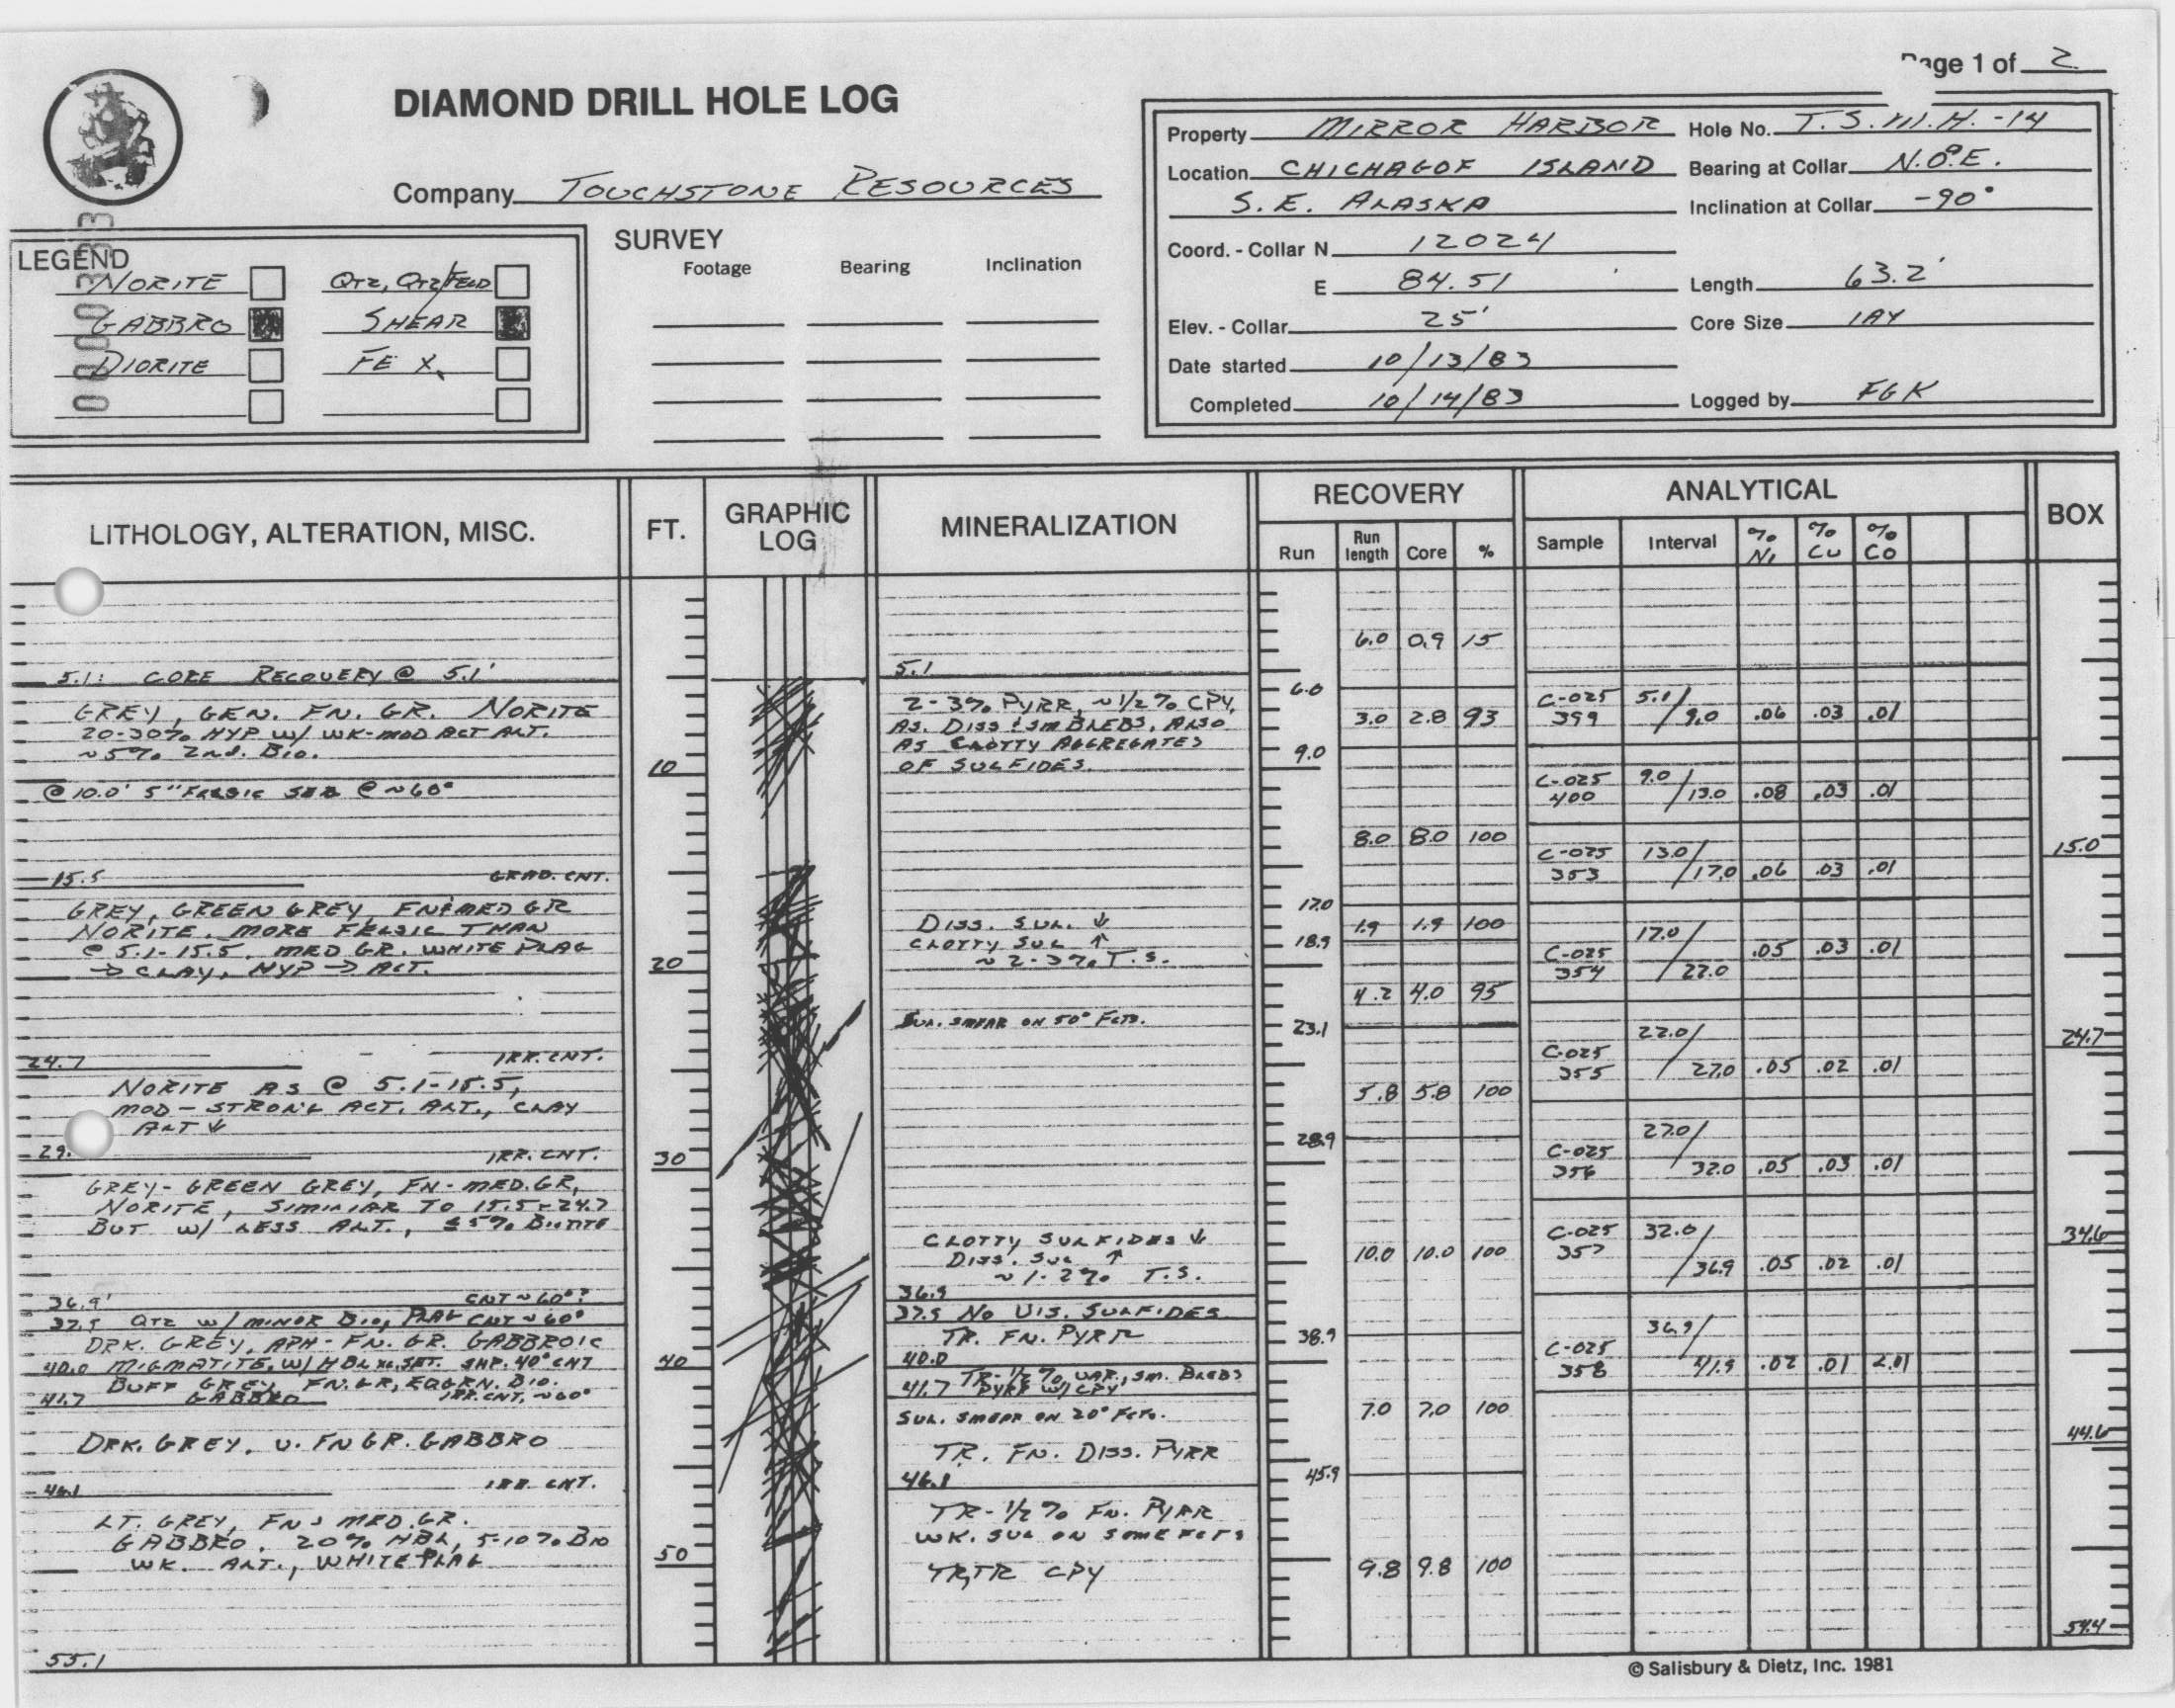 Page 1 of 2
DIAMOND DRILL HOLE LOG
Company TOUCHSTONE RESOURCES
Property MIRROR HARBOR Hole No. T.S.M.H.-14
Location CHICHAGOF ISLAND Bearing at Collar N.0°E.
S.E. ALASKA Inclination at Collar -90°
Coord. - Collar N 12024
E 84.51 Length 63.2'
Elev. - Collar 25' Core Size IAY
Date started 10/13/83
Completed 10/14/83 Logged by FGK
0000333
LEGEND
NORITE QTZ, QTZ/FELD
GABBRO SHEAR
DIORITE FE X
SURVEY
Footage Bearing Inclination
LITHOLOGY, ALTERATION, MISC.
5.1: CORE RECOVERY @ 5.1'
GREY, GEN. FN. GR. NORITE
20-30% HYP W/ WK-MOD ACT ALT.
~5% 2nd. BIO.
@ 10.0' 5" FELSIC SEG @ ~60°
15.5 GRAD. CNT.
GREY, GREEN GREY, FN-MED GR
NORITE. MORE FELSIC THAN
@ 5.1-15.5. MED GR. WHITE PLAG
→ CLAY, HYP → ACT.
24.7 IRR. CNT.
NORITE AS @ 5.1-15.5,
MOD-STRONG ACT. ALT., CLAY
ALT ↓
29. IRR. CNT.
GREY-GREEN GREY, FN-MED. GR,
NORITE, SIMILIAR TO 15.5-24.7
BUT W/ LESS ALT., ≤5% BIOTITE
36.9' CNT ~60°?
37.5 QTZ W/ MINOR BIO, PLAG CNT ~60°
DRK. GREY, APH-FN. GR. GABBROIC
40.0 MIGMATITE, W/ HBL SHP. 40° CNT
BUFF GREY, FN. GR, EQGRN. BIO.
41.7 GABBRO IRR. CNT. ~60°
DRK. GREY, V. FN GR. GABBRO
46.1 IRR. CNT.
LT. GREY, FN-MED. GR.
GABBRO. 20% HBL, 5-10% BIO
WK. ALT., WHITE PLAG
55.1
FT.
10
20
30
40
50
GRAPHIC
LOG
MINERALIZATION
5.1
2-3% PYRR, ~1/2% CPY,
AS. DISS & SM BLEBS, ALSO
AS CLOTTY AGGREGATES
OF SULFIDES.
DISS. SUL. ↓
CLOTTY SUL ↑
~2-3% T.S.
SUL. SMEAR ON 50° FCTS.
CLOTTY SULFIDES ↓
DISS. SUL ↑
~1-2% T.S.
36.9
37.5 NO VIS. SULFIDES
TR. FN. PYRR
40.0
TR-1/2%, VAR., SM. BLEBS
41.7 PYRR W/ CPY
SUL. SMEAR ON 20° FCTS.
TR. FN. DISS. PYRR
46.1
TR-1/2% FN. PYRR
WK. SUL ON SOME FCTS
TR, TR CPY
RECOVERY
Run Run length Core %
6.0 0.9 15
6.0
3.0 2.8 93
9.0
8.0 8.0 100
17.0
1.9 1.9 100
18.9
4.2 4.0 95
23.1
5.8 5.8 100
28.9
10.0 10.0 100
38.9
7.0 7.0 100
45.9
9.8 9.8 100
ANALYTICAL
Sample Interval % Ni % Cu % Co
C-025 399 5.1/9.0 .06 .03 .01
C-025 400 9.0/13.0 .08 .03 .01
C-025 353 13.0/17.0 .06 .03 .01
C-025 354 17.0/22.0 .05 .03 .01
C-025 355 22.0/27.0 .05 .02 .01
C-025 356 27.0/32.0 .05 .03 .01
C-025 357 32.0/36.9 .05 .02 .01
C-025 358 36.9/41.9 .02 .01 <.01
BOX
15.0
24.7
34.6
44.6
54.4
© Salisbury & Dietz, Inc. 1981